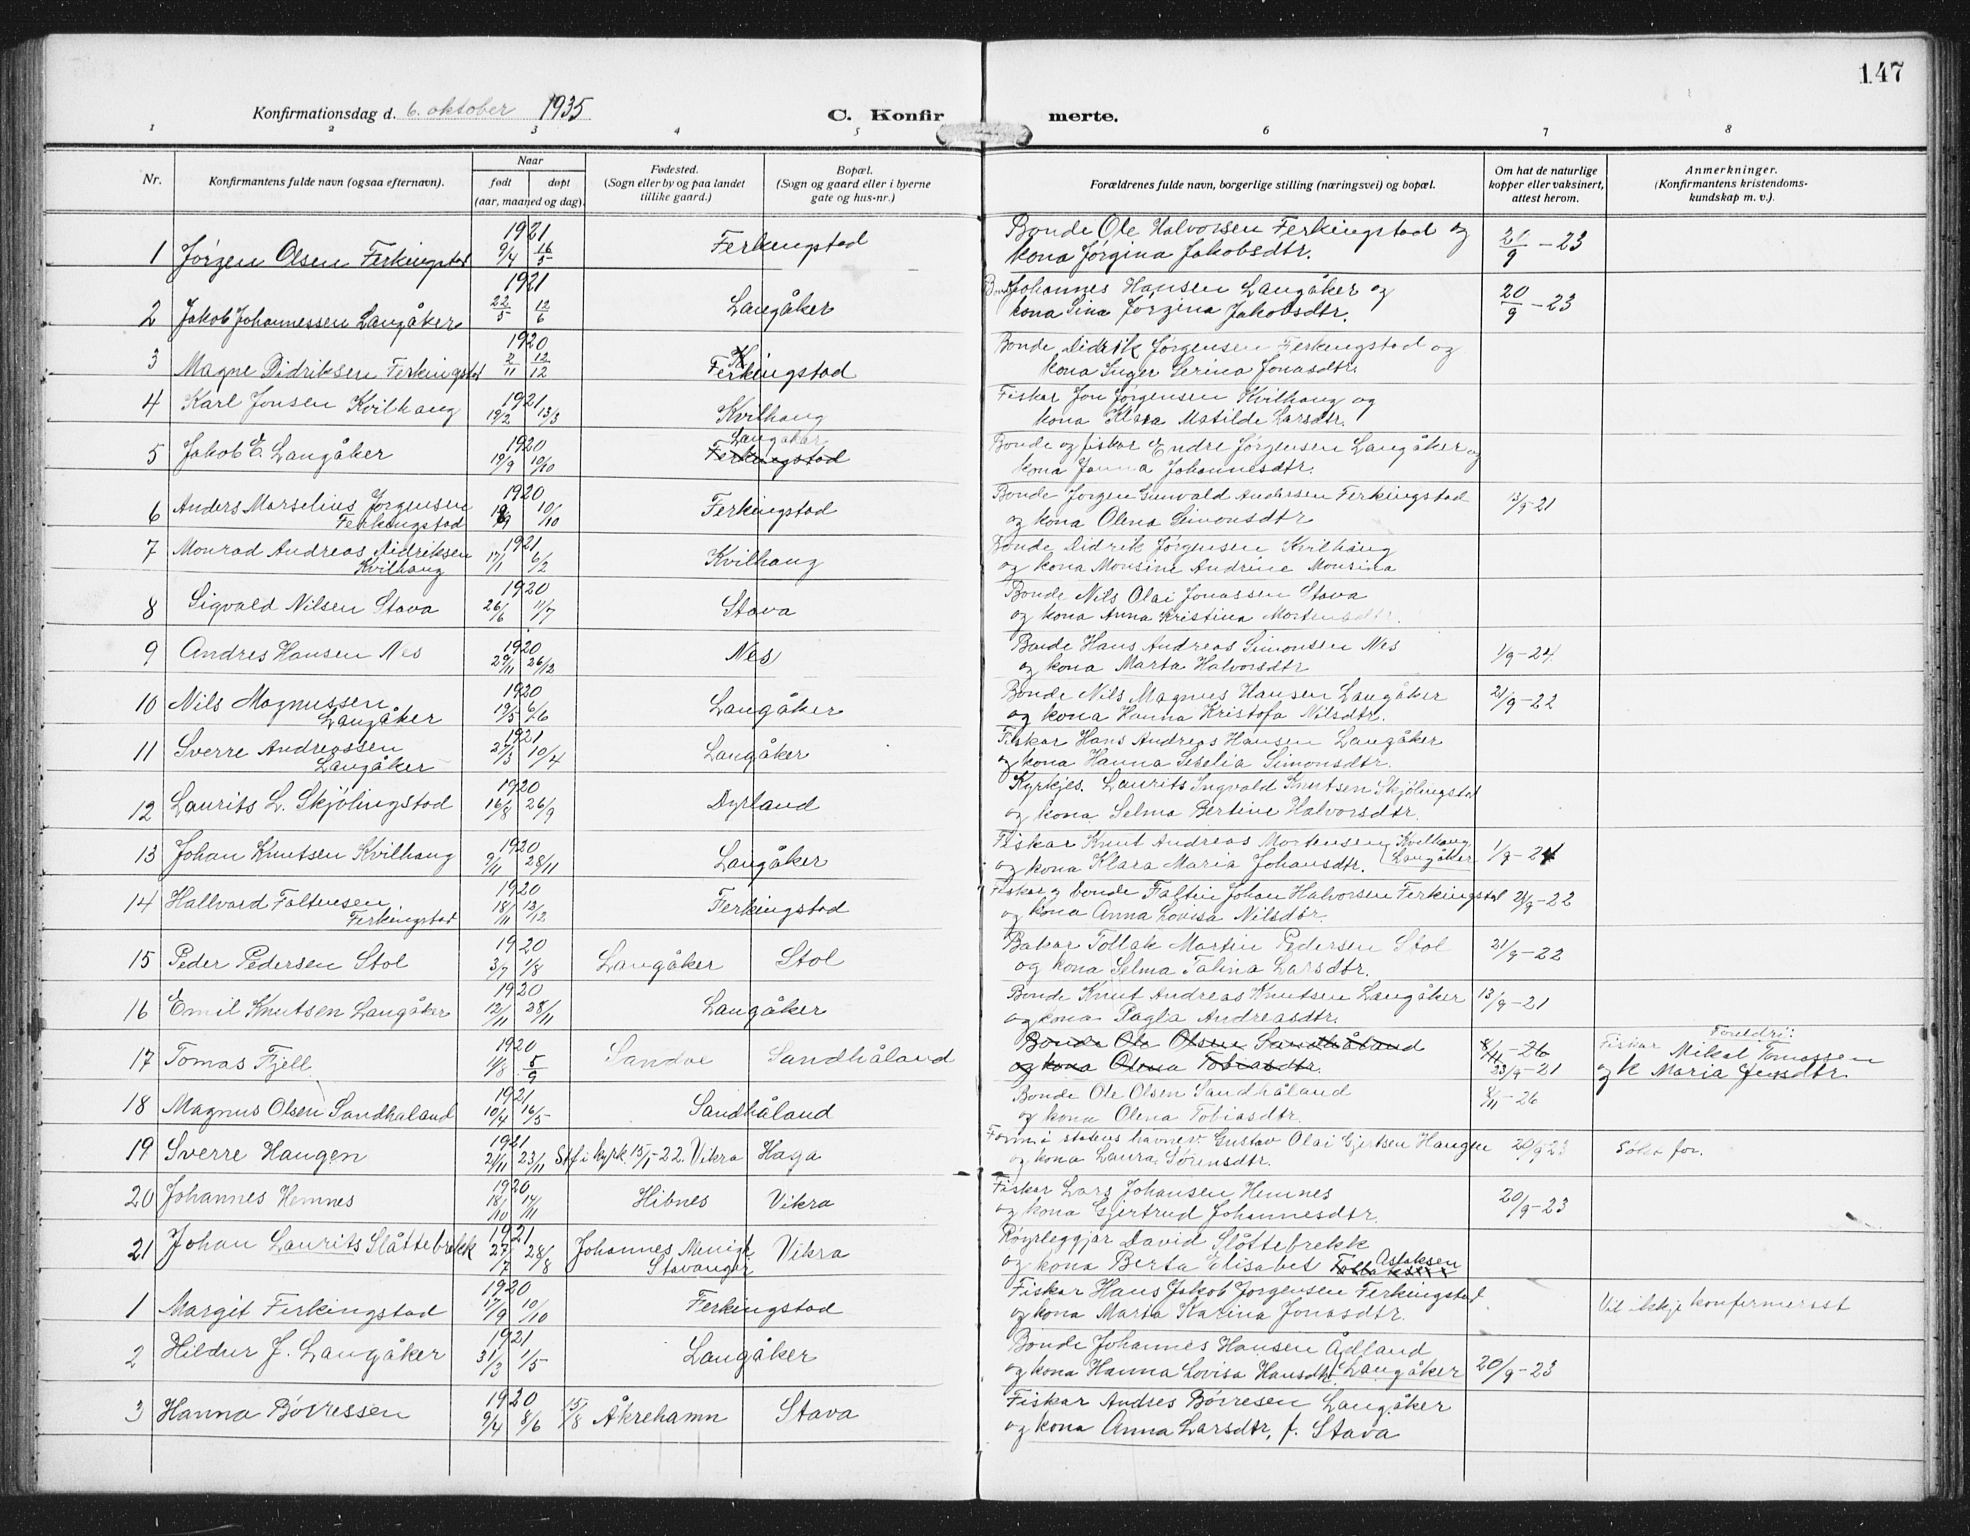 147
Konfirmationsdag d. 6. oktober 1935
C. Konfirmerte.
1 2 3 4 5 6 7 8
Nr. Konfirmantens fulde navn (ogsaa efternavn). Naar født døpt (aar, maaned og dag). Fødested. (Sogn eller by og paa landet tillike gaard.) Bopæl. (Sogn og gaard eller i byerne gate og hus-nr.) Forældrenes fulde navn, borgerlige stilling (næringsvei) og bopæl. Om hat de naturlige kopper eller vaksinert, attest herom. Anmerkninger. (Konfirmantens kristendomskundskap m. v.).
1 Jørgen Olsen Ferkingstad 1921 9/4 16/5 Ferkingstad Bonde Ole Halvorsen Ferkingstad og
kona Jørgina Jakobsdtr. 21/9-23
2 Jakob Johannessen Langåker 1921 22/5 12/6 Langåker Bonde Johannes Hansen Langåker og
kona Sina Jørgina Jakobsdtr. 20/9-23
3 Magne Didriksen Ferkingstad 1920 2/11 12/12 Ferkingstad Bonde Didrik Jørgensen Ferkingstad og
kona Inger Serina Jonasdtr.
4 Karl Jonsen Kvilhaug 1921 19/2 13/3 Kvilhaug Fiskar Jon Jørgensen Kvilhaug og
kona Klara Matilde Larsdtr.
5 Jakob E. Langåker 1920 19/9 10/10 Langåker Ferkingstad Bonde og fiskar Endre Jørgensen Langåker og
kona Janna Johannesdtr.
6 Anders Marselius Jørgensen
Ferkingstad 1920 10/10 Ferkingstad Bonde Jørgen Gunvald Andersen Ferkingstad
og kona Olena Simonsdtr 13/9-21
7 Monrad Andreas Didriksen
Kvilhaug 1921 17/1 6/2 Kvilhaug Bonde Didrik Jørgensen Kvilhaug
og kona Monsine Andrine Monsina
8 Sigvald Nilsen Stava 1920 26/6 11/7 Stava Bonde Nils Olai Jonassen Stava
og kona Anna Kristina Mortensdtr.
9 Andres Hansen Nes 1920 29/11 26/12 Nes Bonde Hans Andreas Simonsen Nes
og kona Marta Halvorsdtr 1/9-24
10 Nils Magnussen
Langåker 1920 19/5 6/6 Langåker Bonde Nils Magnus Hansen Langåker
og kona Hanna Kristofa Nilsdtr. 21/9-22
11 Sverre Andreassen
Langåker 1921 27/3 10/4 Langåker Fiskar Hans Andreas Hansen Langåker
og kona Hanna Seselia Simonsdtr.
12 Laurits L. Skjølingstad 1920 16/8 26/9 Dyrland Kyrkjes. Laurits Ingvald Knutsen Skjølingstad
og kona Selma Bertine Halvorsdtr.
13 Johan Knutsen Kvilhaug 1920 9/11 28/11 Langåker Fiskar Knut Andreas Mortensen Kvilhaug
og kona Klara Maria Johansdtr. (Langåker 1/9-24
14 Hallvard Faltinsen
Ferkingstad 1920 18/11 12/12 Ferkingstad Fiskar og bonde Faltin Johan Halvorsen Ferkingstad
og kona Anna Lovisa Nilsdtr. 21/9-22
15 Peder Pedersen Stol 1920 3/7 1/8 Langåker Stol Bakar Tollak Martin Pedersen Stol
og kona Selma Talina Larsdtr. 21/9-22
16 Emil Knutsen Langåker 1920 12/11 28/11 Langåker Bonde Knut Andreas Knutsen Langåker
og kona Pagla Andreasdtr. 13/9-21
17 Tomas Fjell 1920 11/8 5/9 Sandve Sandhåland Bonde Ole Olsen Sandhåland
og kona Olena Tobiasdtr. 8/11-26 23/9-21 Foreldri:
Fiskar Mikal Tomassen
og k Maria Jensdtr.
18 Magnus Olsen Sandhåland 1921 10/4 16/5 Sandhåland Bonde Ole Olsen Sandhåland
og kona Olena Tobiasdtr. 6/11-26
19 Sverre Haugen 1921 21/11 23/11 Stf. i kyrk. 15/1-22. Vikra Haga Form. i statens havnev. Gustav Olai Gjertsen Haugen
og kona Laura Sørensdtr. 20/9-23
20 Johannes Hemnes 1920 18/10 17/11 Hibnes Vikra Fiskar Lars Johansen Hemnes
og kona Gjertrud Johannesdtr. 20/9-23
21 Johan Laurits Slåttebrekk 1921 27/7 28/8 Johannes Menigh.
Stavanger Vikra Røyrleggjar David Slåttebrekk
og kona Berta Elisabet Aslaksen
1 Margit Ferkingstad 1920 17/9 10/10 Ferkingstad Fiskar Hans Jakob Jørgensen Ferkingstad
og kona Marta Karina Jonasdtr. Vil ikkje konfirmerast
2 Hildur J. Langåker 1921 31/3 1/5 Langåker Bonde Johannes Hansen Ådland
og kona Hanna Lovisa Hansdtr. (Langåker 20/9-23
3 Hanna Børresen 1920 9/4 8/6 15/8 Åkrehamn Stava Fiskar Andres Børresen Langåker
og kona Anna Larsdtr, f. Stava